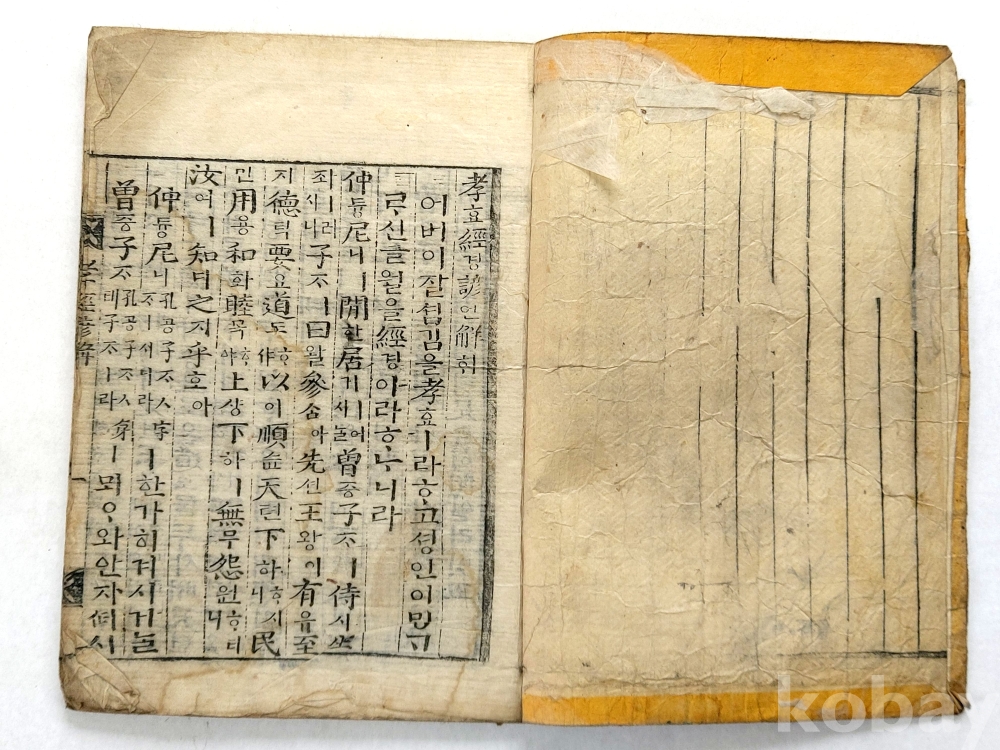 孝효經경諺언解ᄒᆡ
어버이잘셤김을孝효ㅣ라ᄒᆞ고셩인이ᄆᆡᇰᄀᆞ
ᄅᆞ신글월을經경이라ᄒᆞᄂᆞ니라
仲듕尼니ㅣ閒한居거ㅣ어시ᄂᆞᆯ曾증子ᄌᆞㅣ侍시坐
좌ㅣ러시니子ᄌᆞㅣ曰왈參ᄉᆞᆷ아先션王왕이有유至
지德덕要요道도ᄒᆞ야以이順슌天텬下하ᄒᆞ시니民
민用용和화睦목ᄒᆞ야上샹下하ㅣ無무怨원ᄒᆞ니
汝여ㅣ知디之지乎호아
仲듕尼니孔공子ᄌᆞㅅ字ᄌᆞㅣ시니라ㅣ한가히겨시거늘
曾증子ᄌᆞ孔공子ᄌᆞㅅ弟뎨子ᄌᆞㅣ라ㅣ뫼ᄋᆞ와안자겨시
孝經諺解 一
kobay